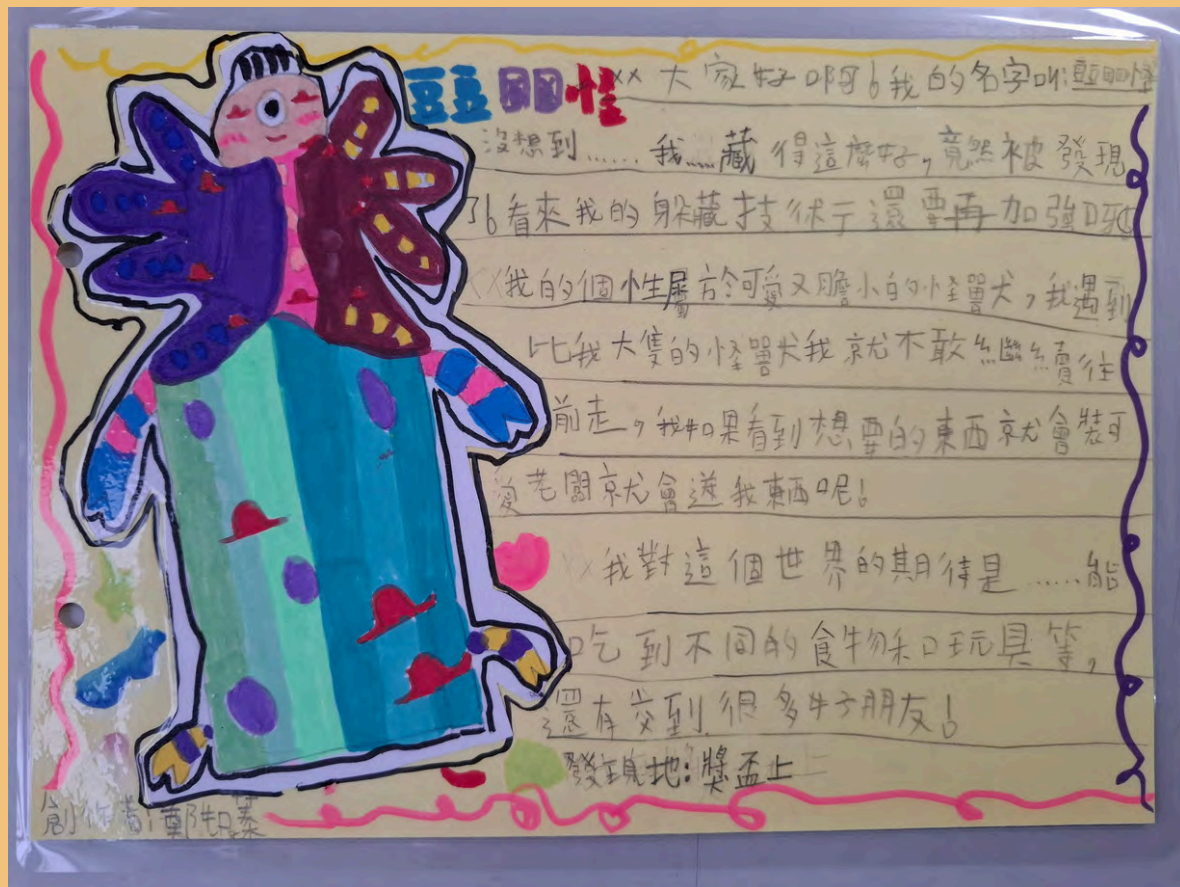 豆豆 怪
XX大家好啊!我的名字叫:
沒想到……我……藏得這麼好,竟然被發現
了!看來我的躲藏技術于還要再加強呀!
XX我的個性屬於可愛又膽小的怪獸,我遇到
比我大隻的怪獸我就不敢繼續往
前走,我如果看到想要的東西就會裝可
愛老闆就會送我東西呢!
XX我對這個世界的期待是……能
吃到不同的食物和玩具等,
還有交到很多好朋友!
發現地:獎盃上
創作者:鄭